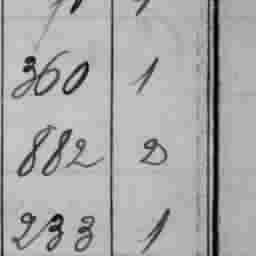 360 1
882 2
233 1